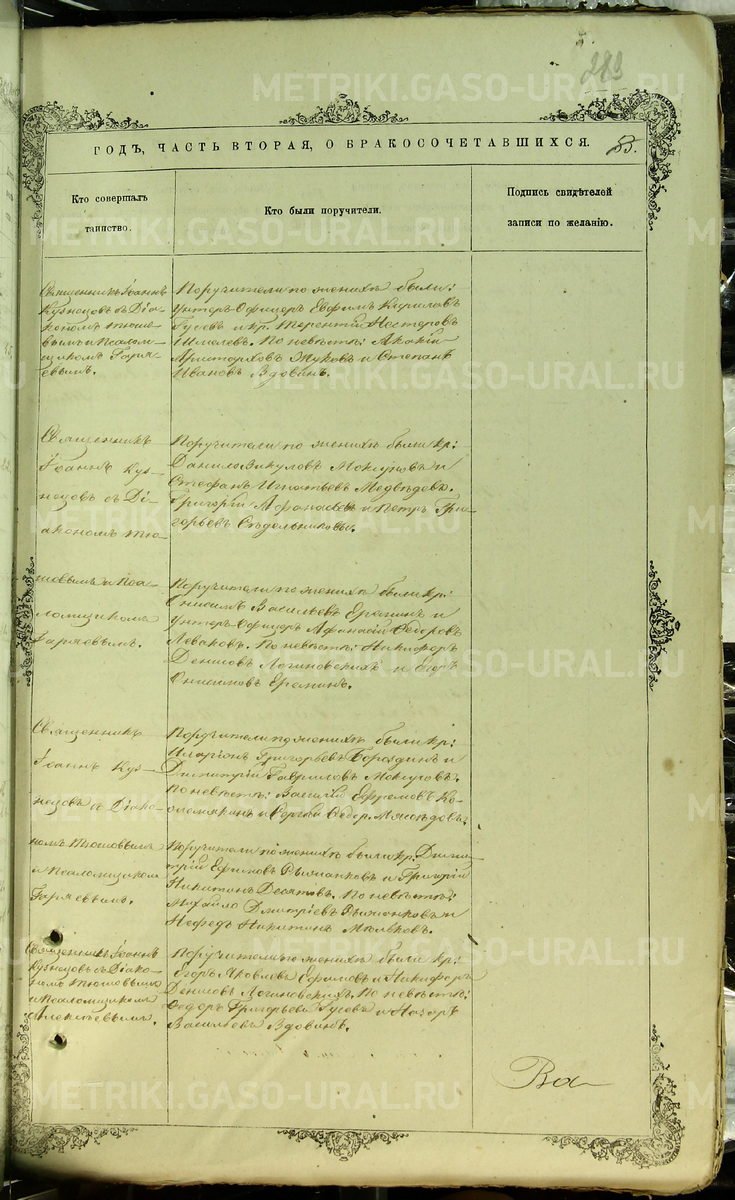 283
ГОДЪ, ЧАСТЬ ВТОРАЯ, О БРАКОСОЧЕТАВШИХСЯ.
Кто совершалъ
таинство.
Кто были поручители.
Подпись свидѣтелей
записи по желанію.
Священникъ Іоаннъ
Кузнецовъ съ Діа-
кономъ Тюше-
вымъ и Псалом-
щикомъ Гаря-
евымъ.
Поручители по женихѣ были:
Унтеръ-Офицеръ Евфимъ Кириловъ
Гусевъ и кр. Терентій Нестеровъ
По невѣстѣ: Акакій
Аристарховъ Жуковъ и Степанъ
Ивановъ Вдовинъ.
Священникъ
Іоаннъ Куз-
нецовъ съ Ді-
акономъ Тю-
шовымъ и Пса-
ломщикомъ
Гаряевымъ.
Поручители по женихѣ были кр:
Данило Викуловъ Мокрушовъ и
Стефанъ Игнатьевъ Медвѣдевъ.
Григорій Афанасьевъ и Петръ Гри-
горьевъ Сѣдельниковы.
Поручители по женихѣ были кр:
Онисимъ Васильевъ Еремин и
Унтеръ-Офицеръ Афанасій Ѳедоровъ
Леваковъ. По невѣстѣ: Никифоръ
Денисовъ Логиновскихъ и Егоръ
Онисимовъ Ереминъ.
Священникъ
Іоаннъ Куз-
нецовъ съ Діако-
номъ Тюшовымъ
и Псаломщикомъ
Гаряевымъ.
Поручители по женихѣ были кр:
Иларіонъ Григорьевъ Бороздинъ и
Димитрій Гавриловъ
По невѣстѣ: Василій Ефремовъ Ко-
и Сергѣй Ѳедор. Мясоѣдовъ.
Поручители по женихѣ были кр. Дими-
трій Ефимовъ и Григорій
Никитинъ Десятовъ. По невѣстѣ:
Михайло Дмитріевъ и
Нефедъ Никитинъ
Священникъ Іоаннъ
Кузнецовъ съ Діако-
номъ Тюшовымъ
и Псаломщикомъ
Алексѣевымъ.
Поручители по женихѣ были кр:
Егоръ Яковлевъ Ефимовъ и Никифоръ
Денисовъ Логиновскихъ. По невѣстѣ:
Ѳедоръ Григорьевъ Гусевъ и Назаръ
Васильевъ Вдовинъ.
METRIKI.GASO-URAL.RU